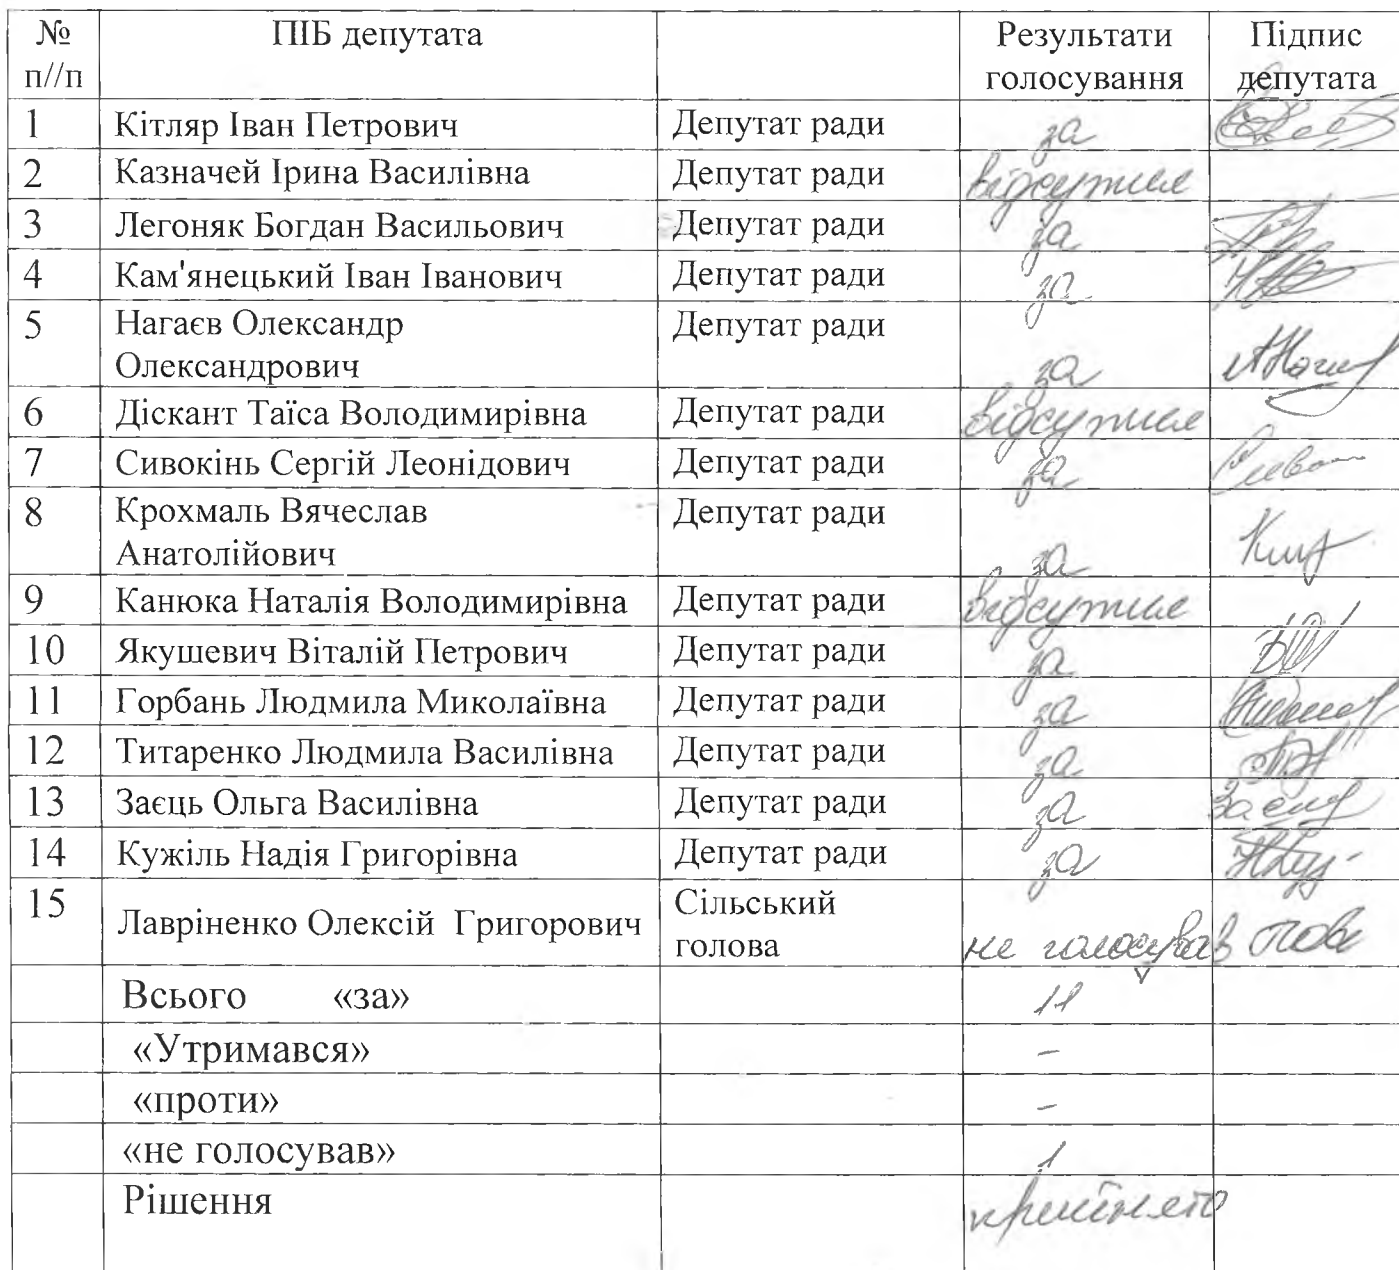 № ПІБ депутата Результати Підпис
п//п голосування депутата
1 Кітляр Іван Петрович Депутат ради за
2 Казначей Ірина Василівна Депутат ради відсутня
3 Легоняк Богдан Васильович Депутат ради за
4 Кам'янецький Іван Іванович Депутат ради за
5 Нагаєв Олександр Депутат ради
Олександрович за
6 Діскант Таїса Володимирівна Депутат ради відсутня
7 Сивокінь Сергій Леонідович Депутат ради за
8 Крохмаль Вячеслав Депутат ради
Анатолійович за
9 Канюка Наталія Володимирівна Депутат ради відсутня
10 Якушевич Віталій Петрович Депутат ради за
11 Горбань Людмила Миколаївна Депутат ради за
12 Титаренко Людмила Василівна Депутат ради за
13 Заєць Ольга Василівна Депутат ради за
14 Кужіль Надія Григорівна Депутат ради за
15 Лавріненко Олексій Григорович Сільський
голова не голосував
Всього «за» 11
«Утримався» -
«проти» -
«не голосував» 1
Рішення прийнято